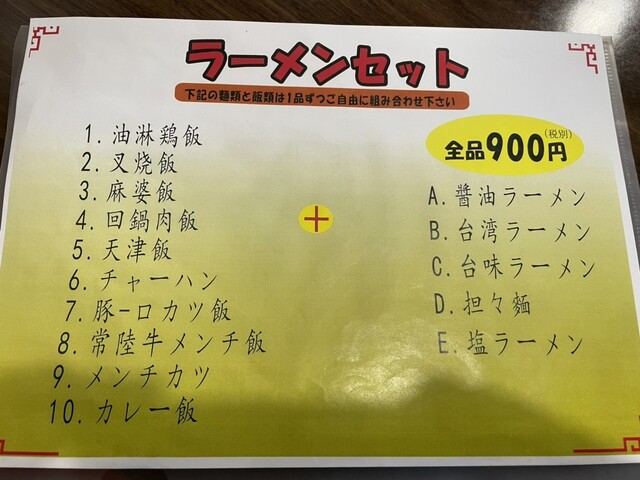 ラーメンセット
下記の麺類と飯類は1品ずつご自由に組み合わせ下さい
(税別)
全品900円
1. 油淋鶏飯
2. 叉焼飯
3. 麻婆飯
4. 回鍋肉飯
5. 天津飯
6. チャーハン
7. 豚一口カツ飯
8. 常陸牛メンチ飯
9. メンチカツ
10. カレー飯
+
A. 醤油ラーメン
B. 台湾ラーメン
C. 台味ラーメン
D. 担々麺
E. 塩ラーメン